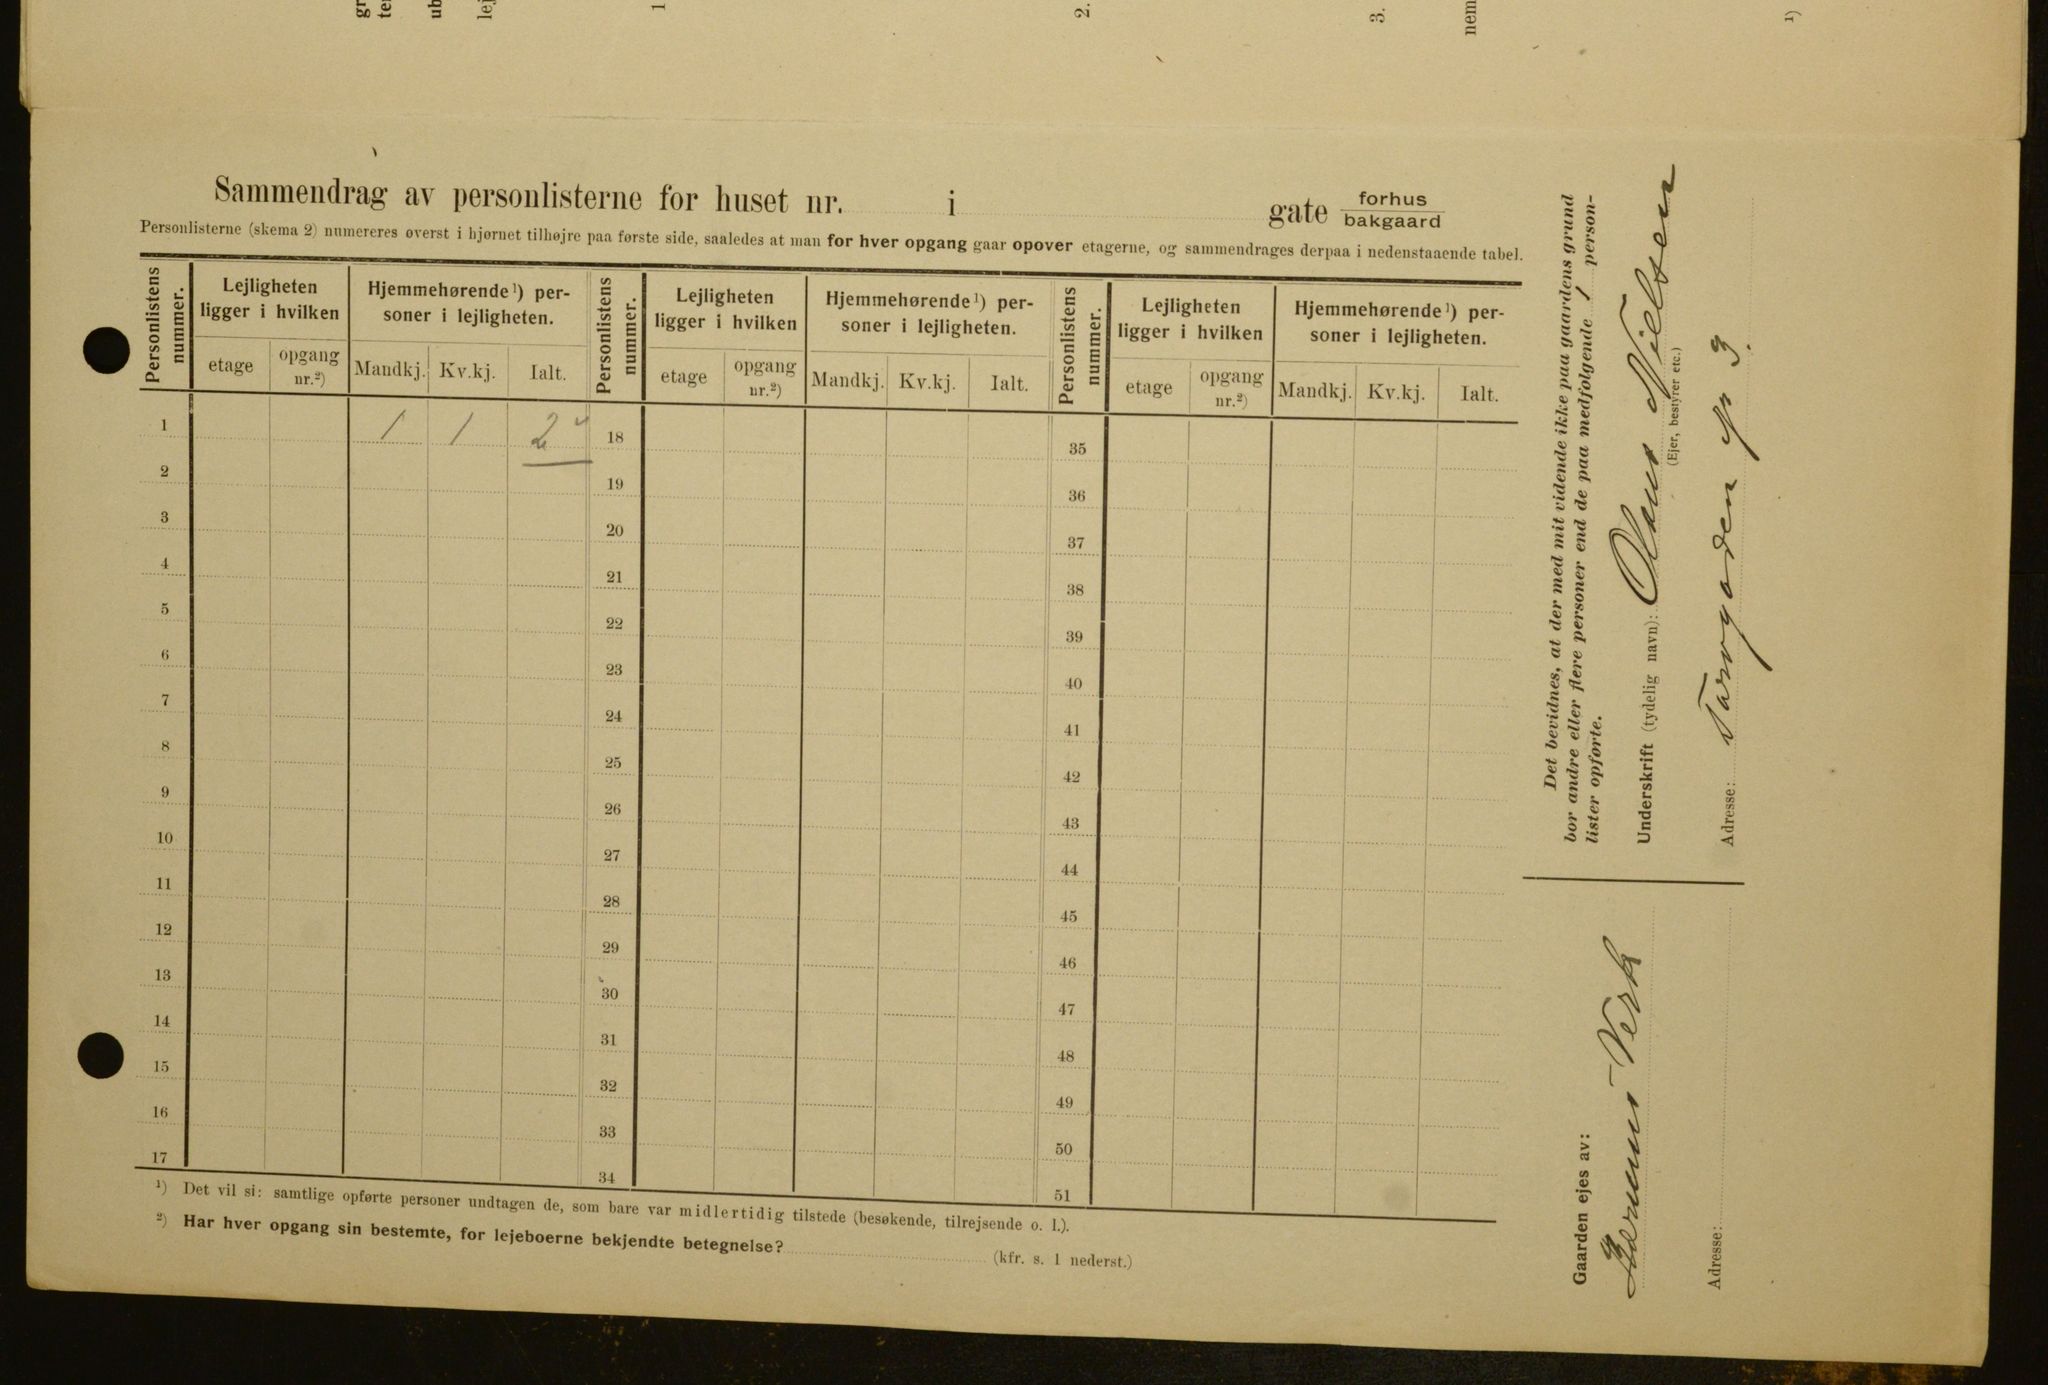 gr
ter
ub
lej
1
2.
3.
nem
1)
Sammendrag av personlisterne for huset nr. i gate forhus
bakgaard
Personlisterne (skema 2) numereres øverst i hjørnet tilhøjre paa første side, saaledes at man for hver opgang gaar opover etagerne, og sammendrages derpaa i nedenstaaende tabel.
Personlistens nummer. Lejligheten ligger i hvilken Hjemmehørende 1) personer i lejligheten. Personlistens nummer. Lejligheten ligger i hvilken Hjemmehørende 1) personer i lejligheten. Personlistens nummer. Lejligheten ligger i hvilken Hjemmehørende 1) personer i lejligheten.
etage opgang nr.2) Mandkj. Kv.kj. Ialt. etage opgang nr.2) Mandkj. Kv.kj. Ialt. etage opgang nr.2) Mandkj. Kv.kj. Ialt.
1 1 1 2 18 35
2 19 36
3 20 37
4 21 38
5 22 39
6 23 40
7 24 41
8 25 42
9 26 43
10 27 44
11 28 45
12 29 46
13 30 47
14 31 48
15 32 49
16 33 50
17 34 51
1) Det vil si: samtlige opførte personer undtagen de, som bare var midlertidig tilstede (besøkende, tilrejsende o. l.).
2) Har hver opgang sin bestemte, for lejeboerne bekjendte betegnelse? (kfr. s. 1 nederst.)
Det bevidnes, at der med mit vidende ikke paa gaardens grund
bor andre eller flere personer end de paa medfølgende 1 person-
lister opførte.
Underskrift (tydelig navn): Olaus Nielsen
(Ejer, bestyrer etc.)
Adresse: Torvgaden No 3.
Gaarden ejes av:
Verk
Adresse: